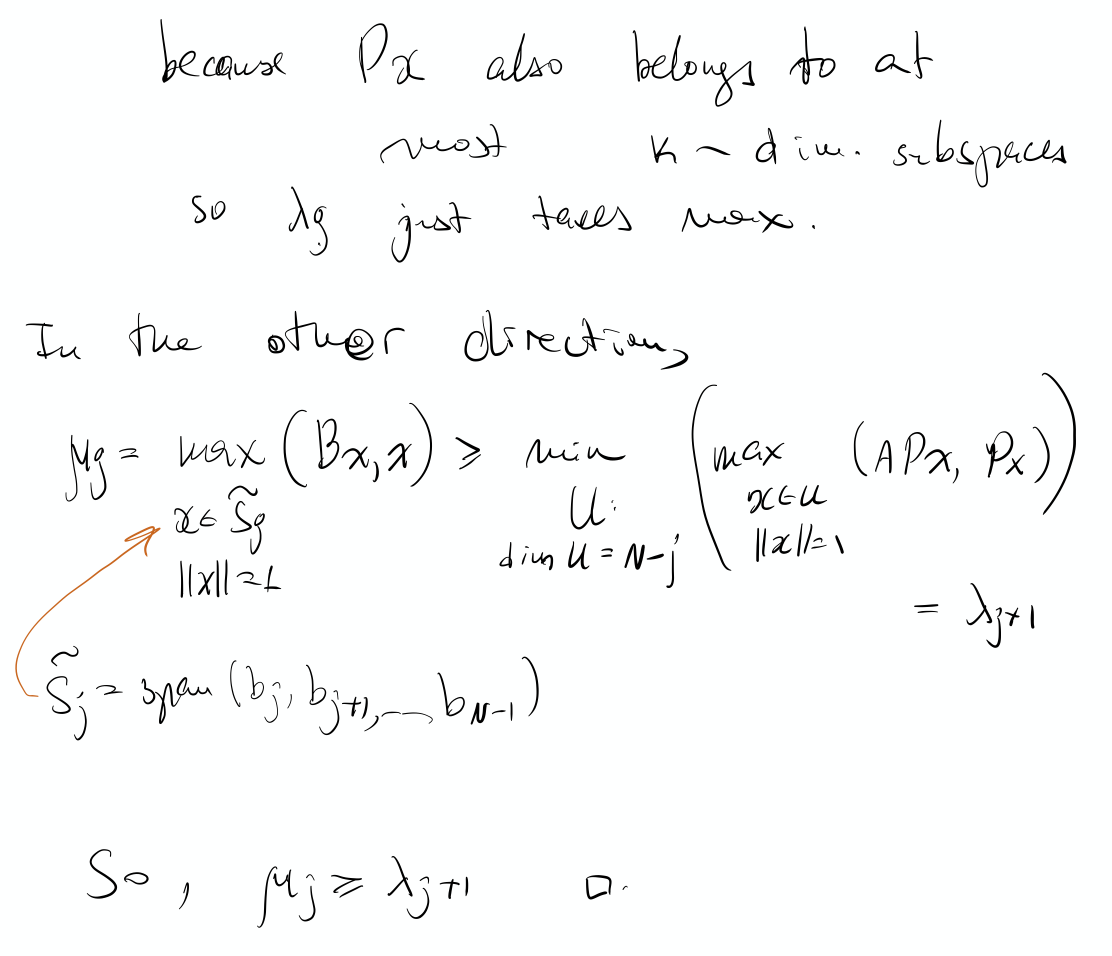 because Px also belongs to at
most k-dim. subspaces
so λj just takes max.
In the other direction,
μj = max (Bx, x) ≥ min ( max (APx, Px) )
x ∈ S̃j U: x ∈ U
||x|| = 1 dim U = N-j ||x|| = 1
= λj+1
S̃j = span (bj, bj+1, ... bN-1)
So, μj ≥ λj+1 □.